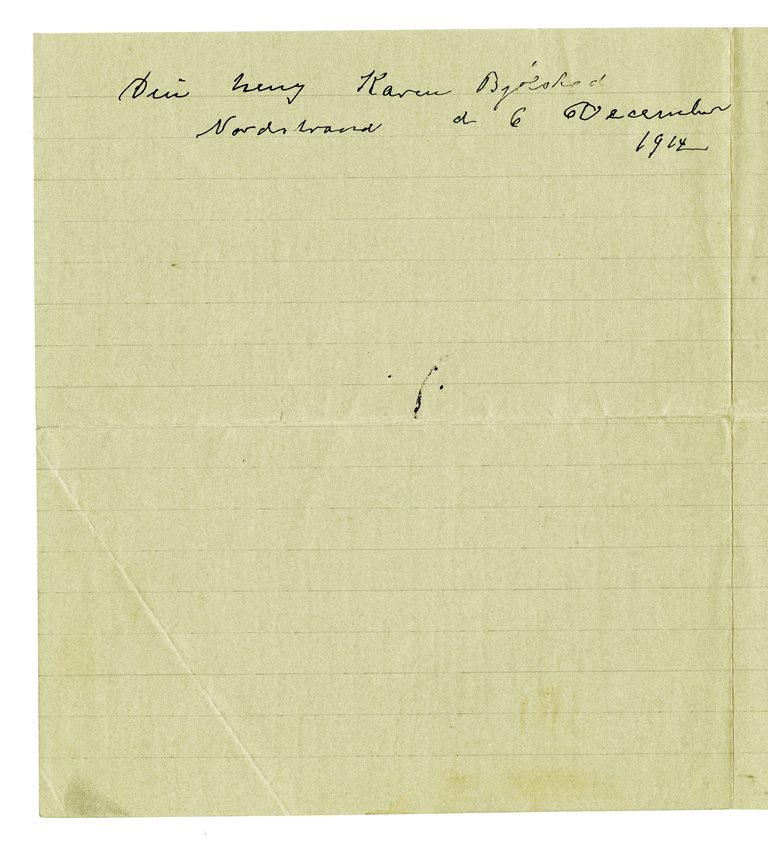 Din heng Karen Bjølstad
Nordstrand d 6 December
1914